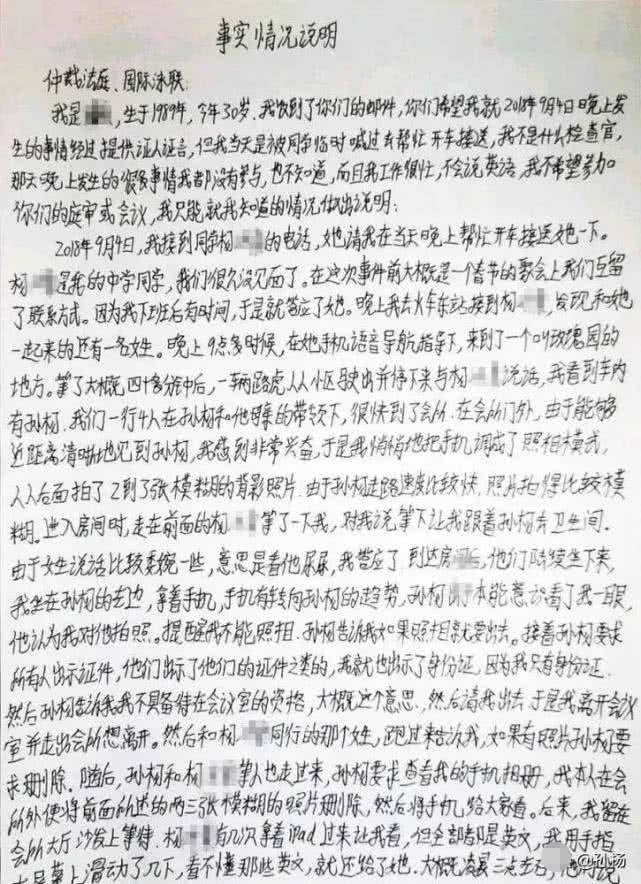 事实情况说明
仲裁法庭、国际泳联:
我是,生于1989年,今年30岁.我收到了你们的邮件,你们希望我就2018年9月4日晚上发
生的事情经过提供证人证言,但我当天是被同学临时喊过去帮忙开车接送,我不是什么检查官,
那天晚上发生的很多事情我都没有参与,也不知道,而且我工作很忙,不会说英语,我不希望参加
你们的庭审或会议,我只能就我知道的情况做出说明:
2018年9月4日,我接到同学杨的电话,她请我在当天晚上帮忙开车接送她一下。
杨是我的中学同学,我们很久没见面了。在这次事件前大概是一个春节的聚会上我们互留
了联系方式。因为我下班后有时间,于是就答应了她。晚上我去火车东站接到杨,发现和她
一起来的还有一名女性。晚上9点多时候,在她手机语音导航指导下,来到了一个叫玫瑰园的
地方。等了大概四十多分钟后,一辆路虎从小区驶出并停下来与杨说话,我看到车内
有孙杨.我们一行4人在孙杨和他母亲的带领下,很快到了会所.在会所门外,由于能够
近距离清晰地见到孙杨,我感到非常兴奋,于是我悄悄地把手机调成了照相模式,
从后面拍了2到了3张模糊的背影照片.由于孙杨走路速度比较快,照片拍得比较模
糊.进入房间时,走在前面的杨等了一下我,对我说等下让我跟着孙杨去卫生间.
由于女生说话比较委婉一些,意思是看他尿尿,我答应了.到达房后,他们陆续坐下来,
我坐在孙杨的左边,拿着手机,手机有转向孙杨的趋势,孙杨本能意识看了我一眼,
他认为我对他拍照。提醒我不能照相.孙杨告诉我如果照相就要出去。接着孙杨要求
所有人出示证件,他们出示了他们的证件之类的,我就也出示了身份证,因为我只有身份证.
然后孙杨告诉我我不具备待在会议室的资格,大概这个意思.然后请我出去.于是我离开会议
室并走出会所想离开。然后和杨同行的那个女生,跑过来告诉我,如果有照片孙杨要
求删除.随后,孙杨和杨等人也走过来,孙杨要求查看我的手机相册,我本人在会
所外便将前面所述的两三张模糊的照片删除,然后将手机给大家看。后来,我留在
会所大厅沙发上等待.杨有几次拿着iPad过来让我看,但全部都是英文,我用手指
在屏幕上滑动了几下,看不懂那些英文,就还给了她.大概凌晨三点左右,他们说
@孙杨